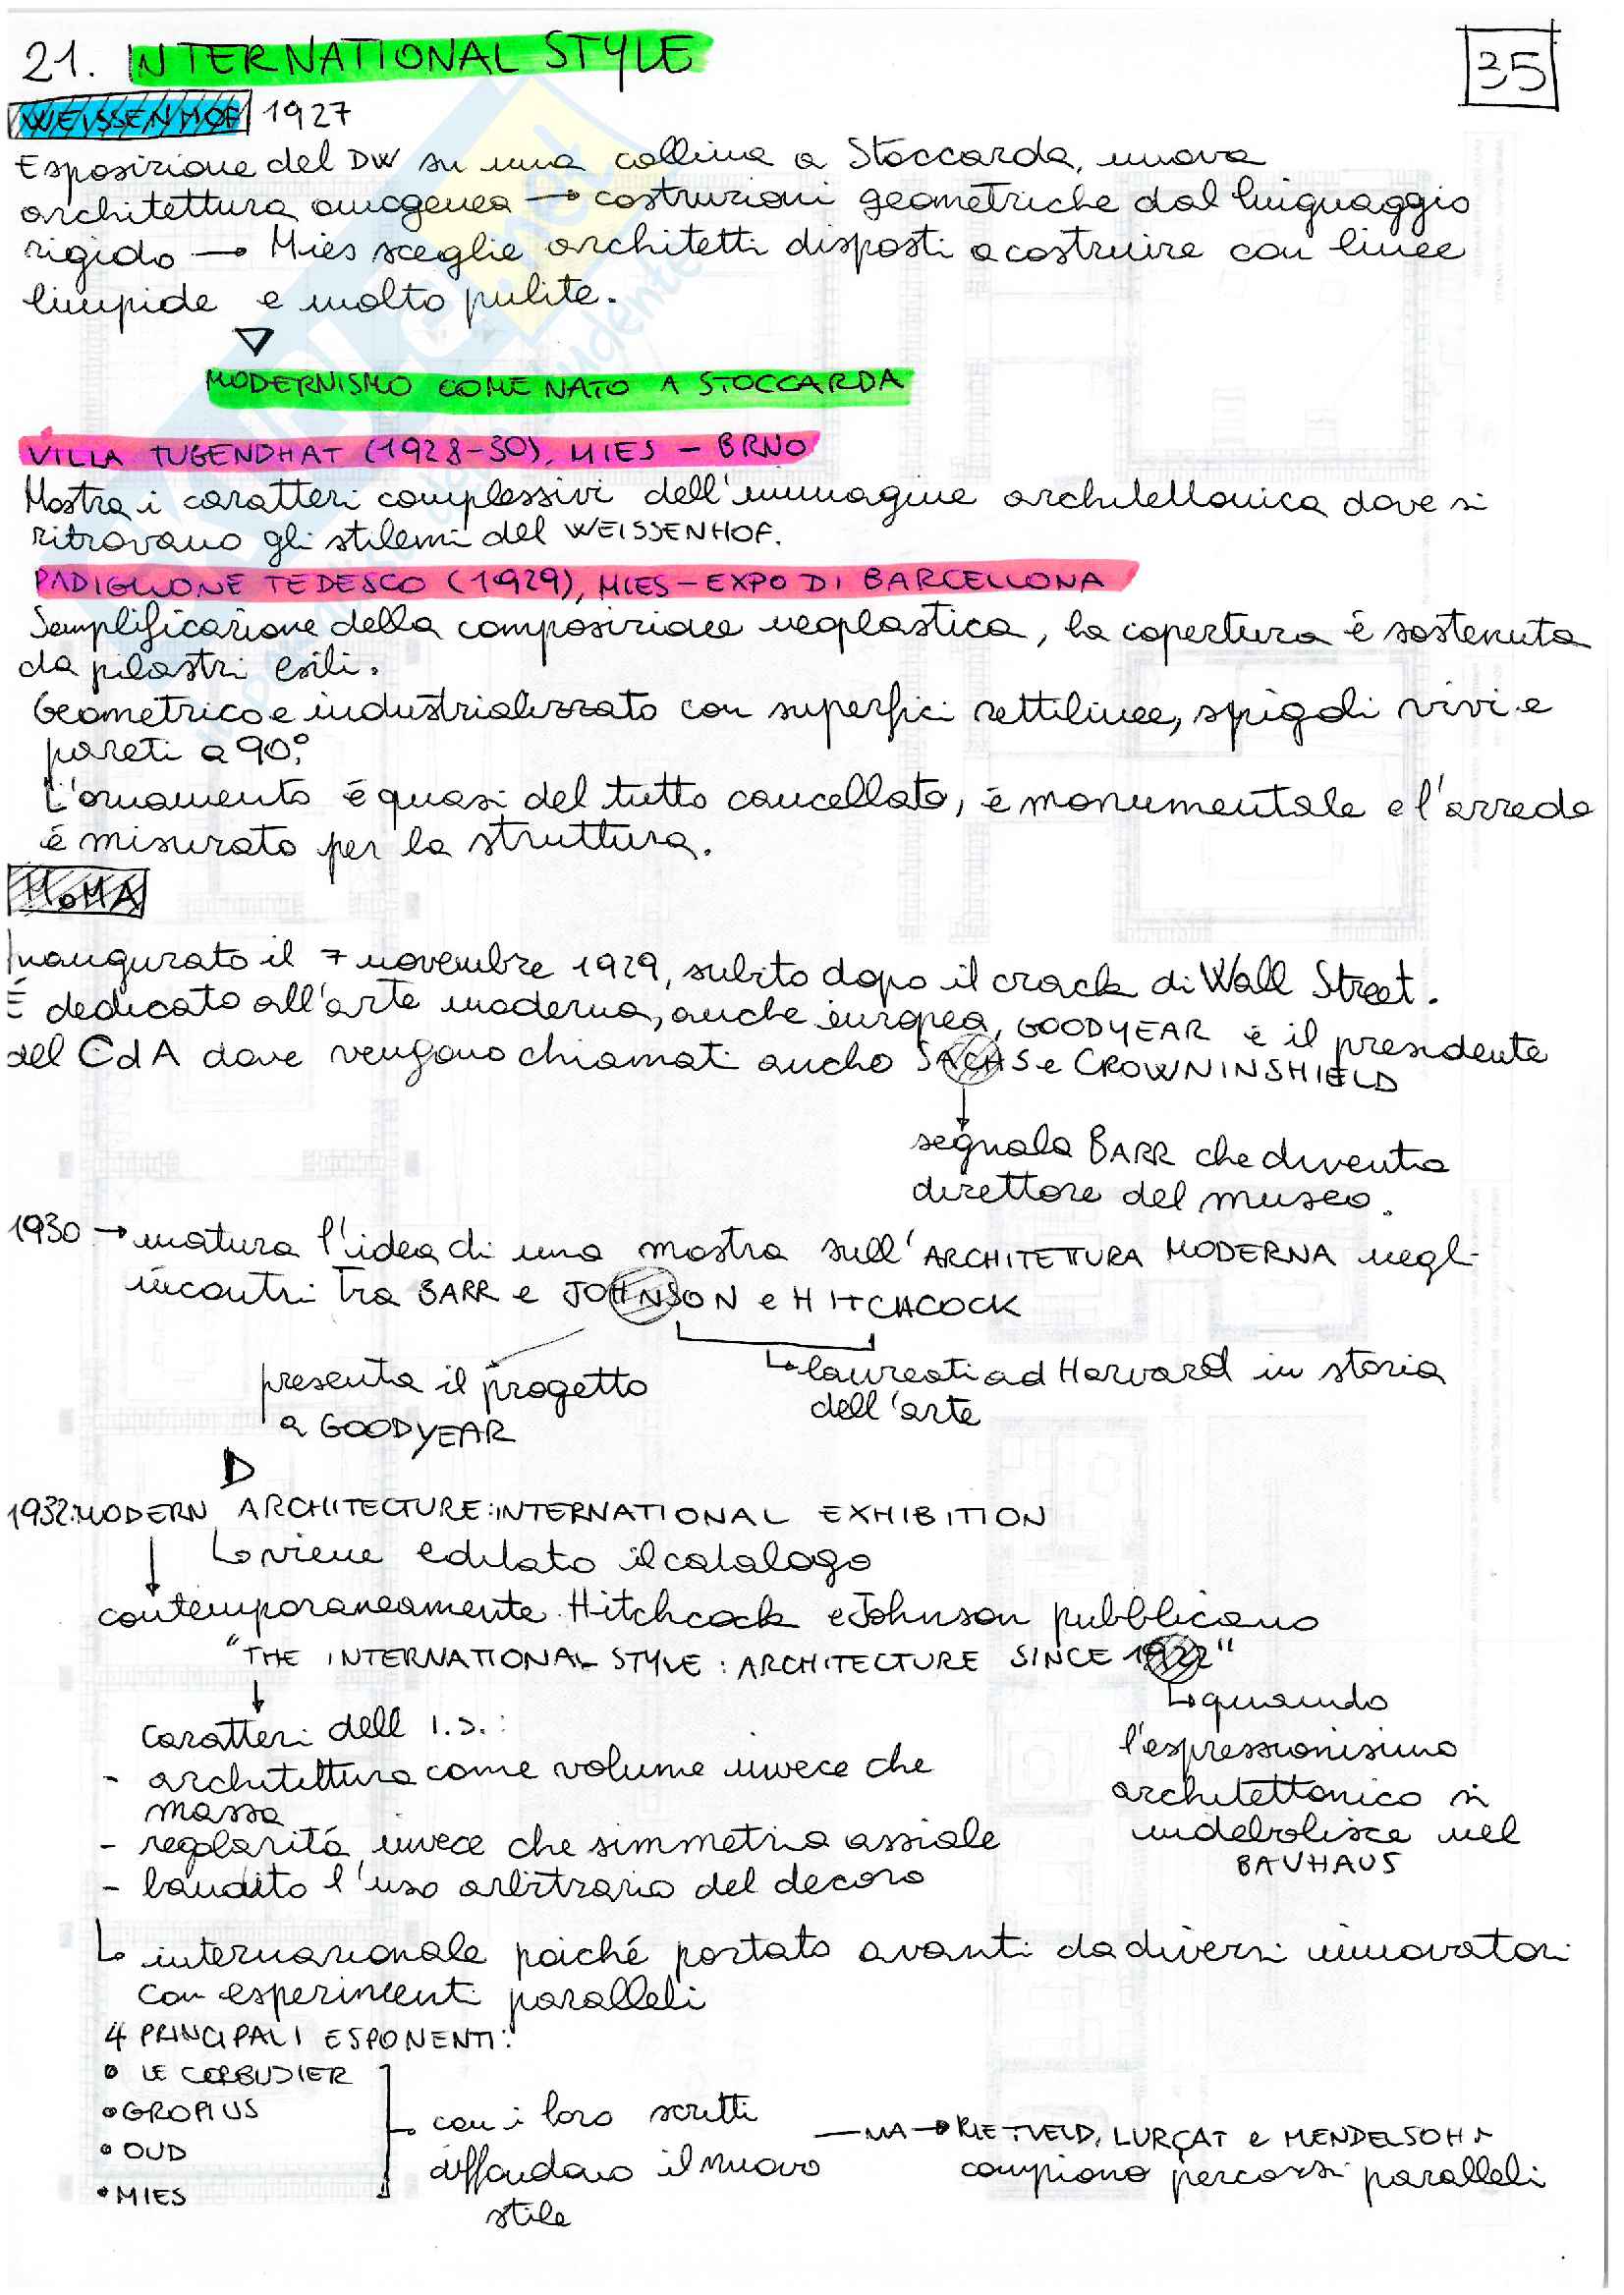 21. INTERNATIONAL STYLE
35
WEISSENHOF 1927
Esposizione del DW su una collina a Stoccarda, nuova
architettura omogenea → costruzioni geometriche dal linguaggio
rigido → Mies sceglie architetti disposti a costruire con linee
limpide e molto pulite.
MODERNISMO COME NATO A STOCCARDA
VILLA TUGENDHAT (1928-30), MIES - BRNO
Mostra i caratteri complessivi dell'immagine architettonica dove si
ritrovano gli stilemi del WEISSENHOF.
PADIGLIONE TEDESCO (1929), MIES - EXPO DI BARCELLONA
Semplificazione della composizione neoplastica, la copertura è sostenuta
da pilastri esili.
Geometrico e industrializzato con superfici rettilinee, spigoli vivi e
pareti a 90°.
L'ornamento è quasi del tutto cancellato, è monumentale e l'arredo
è misurato per la struttura.
MoMA
Inaugurato il 7 novembre 1929, subito dopo il crack di Wall Street.
É dedicato all'arte moderna, anche europea, GOODYEAR è il presidente
del CdA dove vengono chiamati anche SACHS e CROWNINSHIELD
segnala BARR che diventa
direttore del museo.
1930 → matura l'idea di una mostra sull'ARCHITETTURA MODERNA negli
incontri tra BARR e JOHNSON e HITCHCOCK
presenta il progetto
a GOODYEAR
laureati ad Harvard in storia
dell'arte
1932: MODERN ARCHITECTURE: INTERNATIONAL EXHIBITION
viene editato il catalogo
contemporaneamente Hitchcock e Johnson pubblicano
"THE INTERNATIONAL STYLE: ARCHITECTURE SINCE 1922"
quando
l'espressionismo
architettonico si
indebolisce nel
BAUHAUS
caratteri dell I.S.:
- architettura come volume invece che
massa
- regolarità invece che simmetria assiale
- bandito l'uso arbitrario del decoro
internazionale poiché portato avanti da diversi innovatori
con esperimenti paralleli
4 PRINCIPALI ESPONENTI:
• LE CORBUSIER
• GROPIUS
• OUD
• MIES
con i loro scritti
diffondono il nuovo
stile
— MA → RIETVELD, LURÇAT e MENDELSOHN
compiono percorsi paralleli